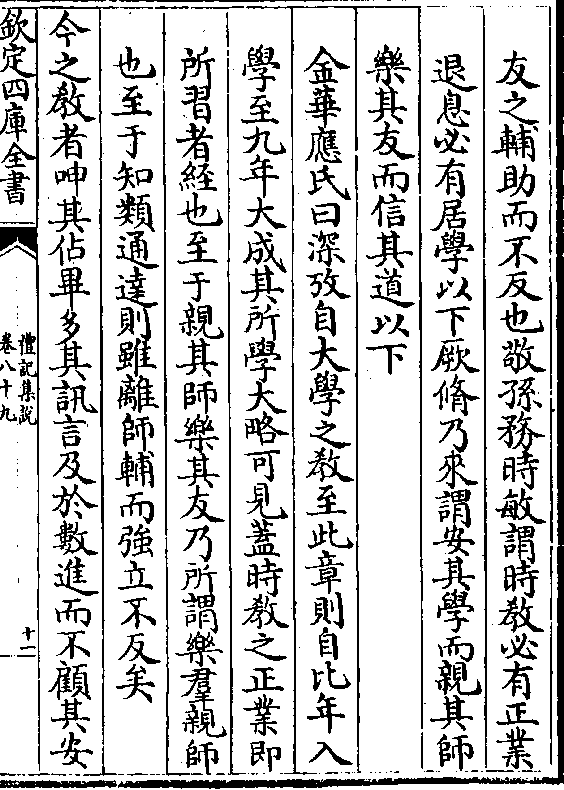 友之輔助而不反也敬孫務時敏謂時教必有正業
退息必有居學以下厥脩乃來謂安其學而親其師
樂其友而信其道以下
金華應氏曰深攷自大學之教至此章則自比年入
學至九年大成其所學大略可見蓋時教之正業即
所習者經也至于親其師樂其友乃所謂樂羣親師
也至于知類通達則雖離師輔而強立不反矣
今之教者呻其佔畢多其訊言及於數進而不顧其安
欽定四庫全書
禮記集說
卷八十九
十一